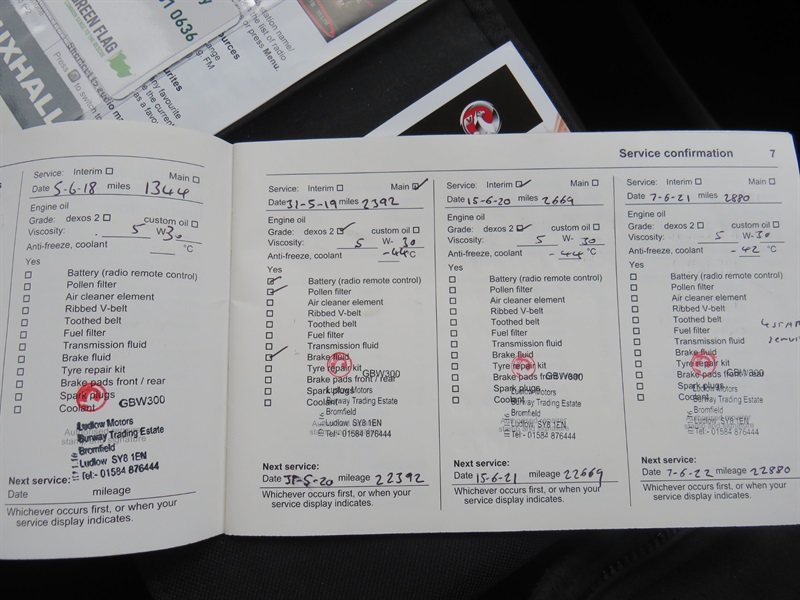 GREEN FLAG
01 0636
VAUXHALL
Press to switch
Shortcut to audio
ources
urites
ny favourite
the current
as a favou
nge
FM
station name/
the list of radio
or press Menu.
Service confirmation 7
Service: Interim Main
Date 5-6-18 miles 1344
Engine oil
Grade: dexos 2 custom oil
Viscosity: 5 W-30
Anti-freeze, coolant °C
Yes
Battery (radio remote control)
Pollen filter
Air cleaner element
Ribbed V-belt
Toothed belt
Fuel filter
Transmission fluid
Brake fluid
Tyre repair kit
Brake pads front / rear
Spark plugs
Coolant
GBW300
Ludlow Motors
Burway Trading Estate
Bromfield
Ludlow SY8 1EN
Tel:- 01584 876444
Next service:
Date mileage
Whichever occurs first, or when your
service display indicates.
Service: Interim Main
Date 31-5-19 miles 2392
Engine oil
Grade: dexos 2 custom oil
Viscosity: 5 W- 30
Anti-freeze, coolant -44 °C
Yes
Battery (radio remote control)
Pollen filter
Air cleaner element
Ribbed V-belt
Toothed belt
Fuel filter
Transmission fluid
Brake fluid
Tyre repair kit
Brake pads front / rear
Spark plugs
Coolant
GBW300
Ludlow Motors
Burway Trading Estate
Bromfield
Ludlow SY8 1EN
Tel:- 01584 876444
Next service:
Date 31-5-20 mileage 22392
Whichever occurs first, or when your
service display indicates.
Service: Interim Main
Date 15-6-20 miles 2669
Engine oil
Grade: dexos 2 custom oil
Viscosity: 5 W- 30
Anti-freeze, coolant -44 °C
Yes
Battery (radio remote control)
Pollen filter
Air cleaner element
Ribbed V-belt
Toothed belt
Fuel filter
Transmission fluid
Brake fluid
Tyre repair kit
Brake pads front / rear
Spark plugs
Coolant
GBW300
Ludlow Motors
Burway Trading Estate
Bromfield
Ludlow SY8 1EN
Tel:- 01584 876444
Next service:
Date 15-6-21 mileage 22669
Whichever occurs first, or when your
service display indicates.
Service: Interim Main
Date 7-6-21 miles 2880
Engine oil
Grade: dexos 2 custom oil
Viscosity: 5 W-30
Anti-freeze, coolant -42 °C
Yes
Battery (radio remote control)
Pollen filter
Air cleaner element
Ribbed V-belt
Toothed belt
Fuel filter
Transmission fluid
Brake fluid
Tyre repair kit
Brake pads front / rear
Spark plugs
Coolant
GBW300
Ludlow Motors
Burway Trading Estate
Bromfield
Ludlow SY8 1EN
Tel:- 01584 876444
Next service:
Date 7-6-22 mileage 22880
Whichever occurs first, or when your
service display indicates.